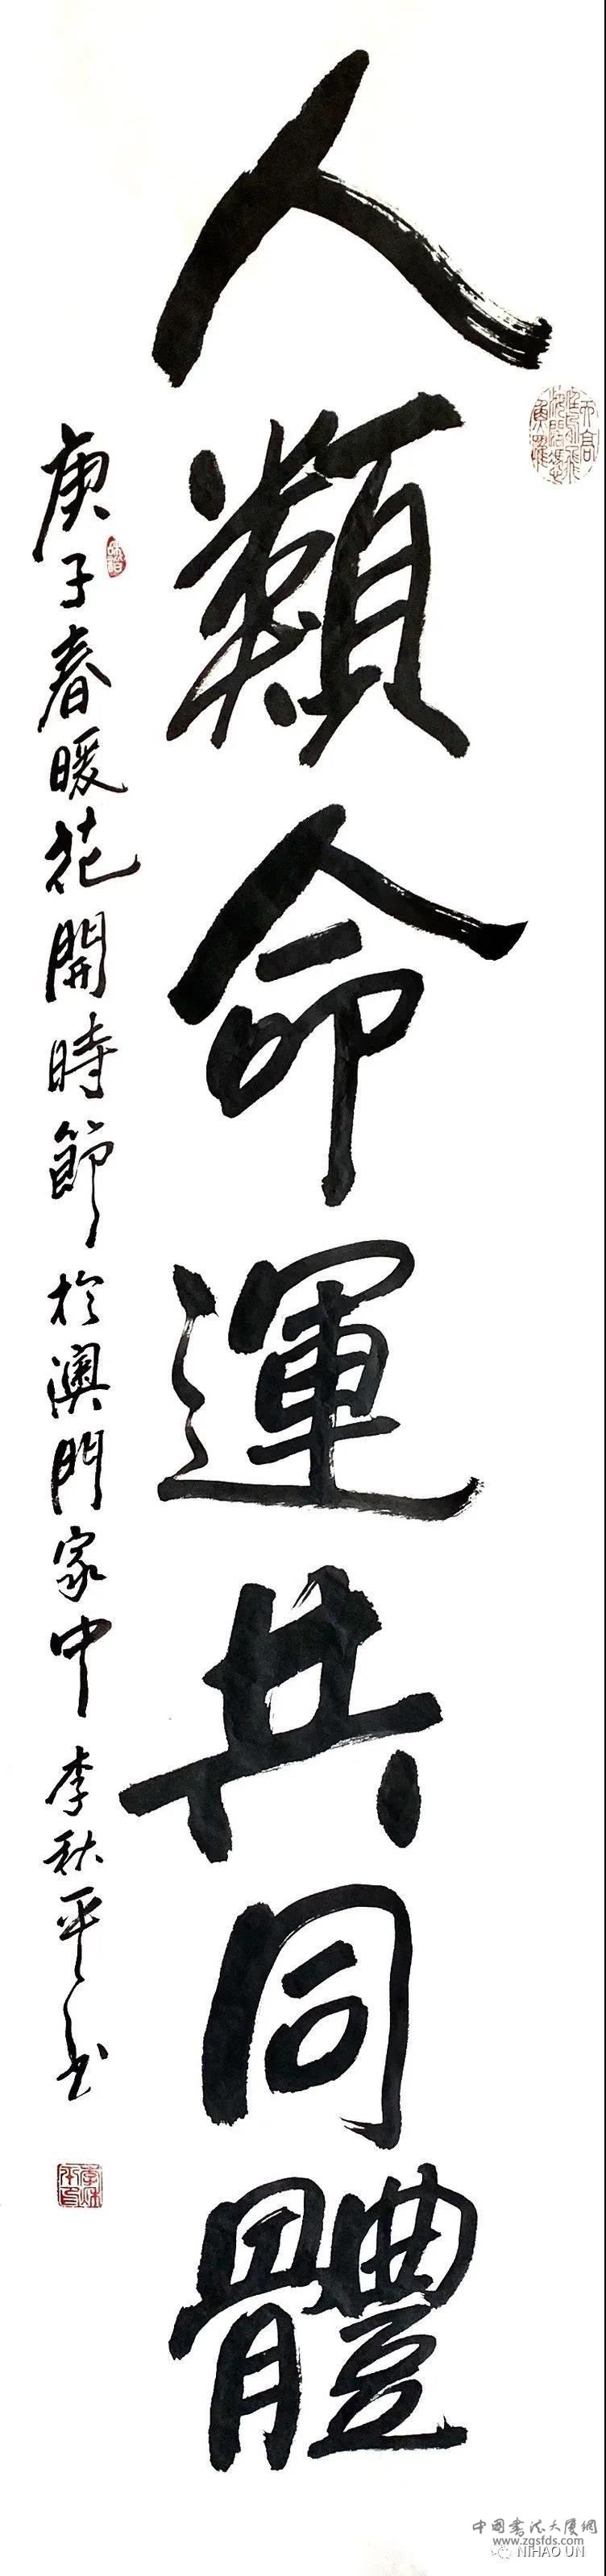 人類命運共同體
庚子春暖花開時節於澳門家中李秋平書
中国书法大厦網
www.zgsfds.com
NIHAO UN